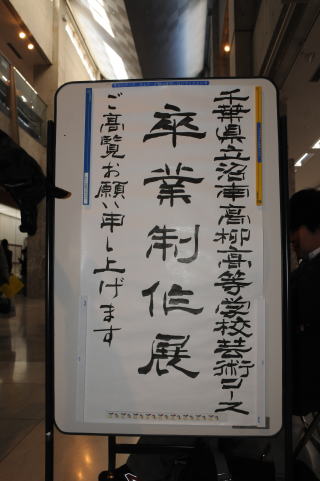 千葉県立沼南高柳高等学校芸術コース
卒業制作展
ご高覧お願い申し上げます